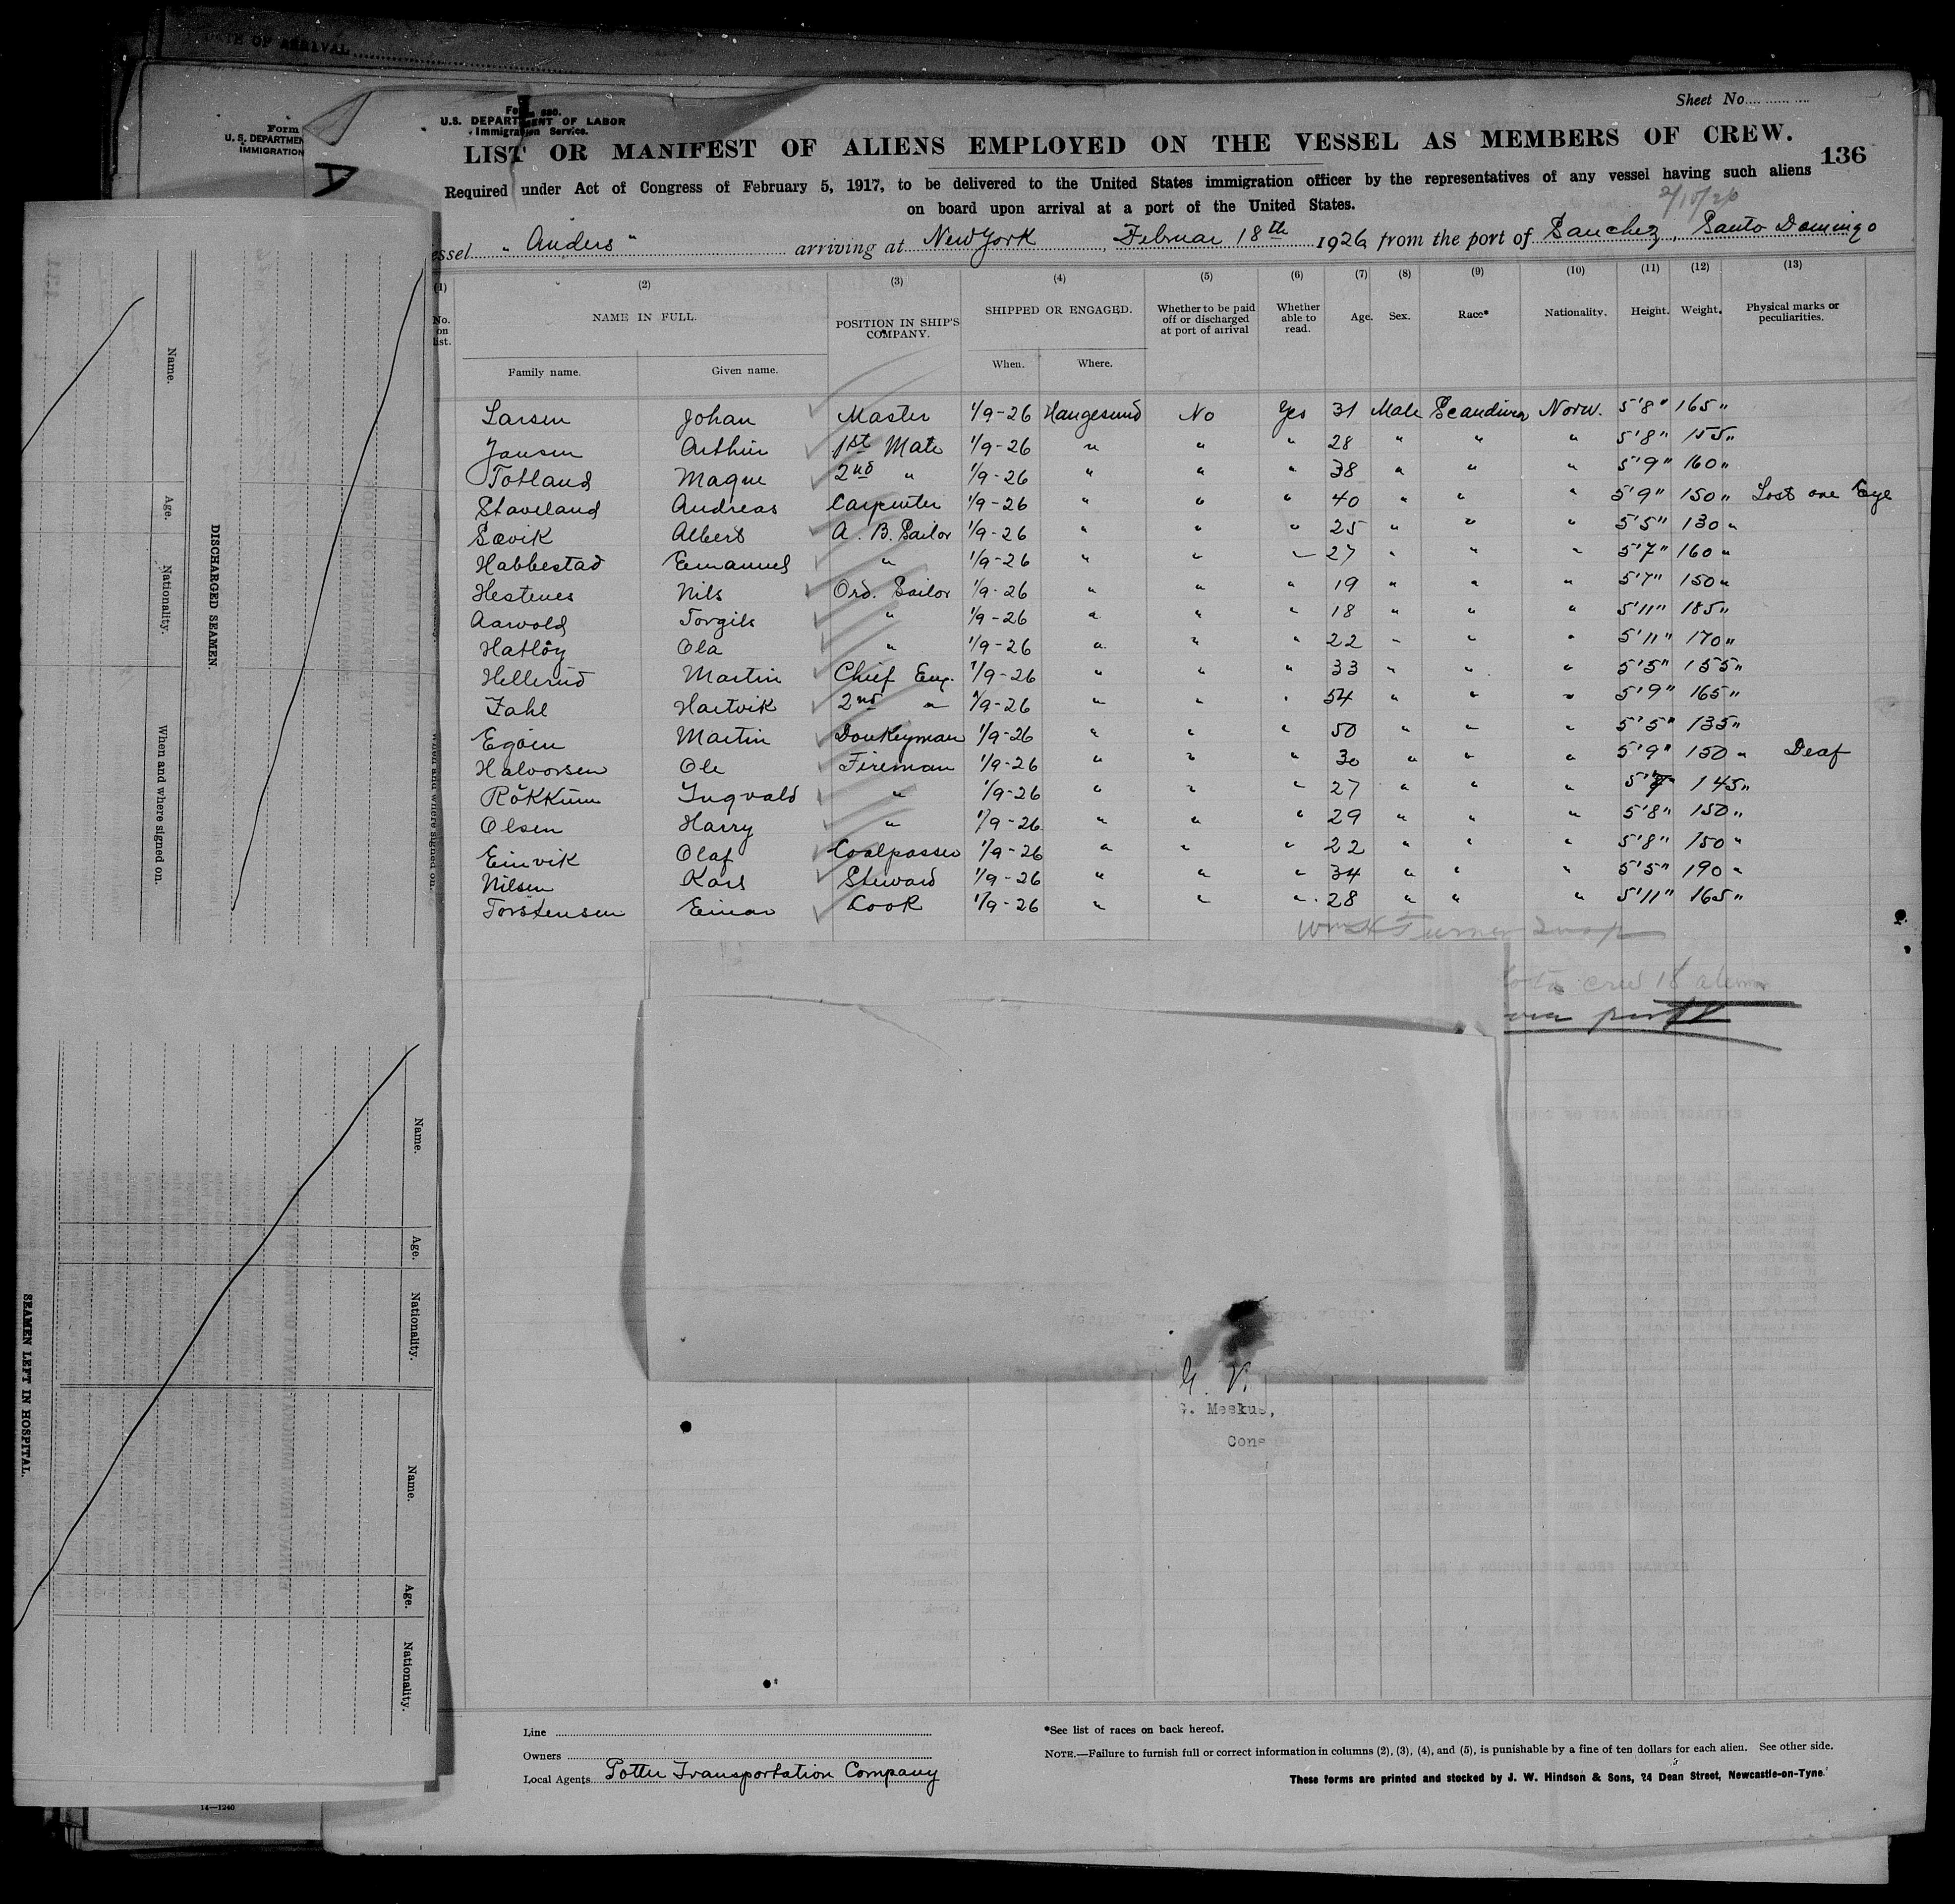 DATE OF ARRIVAL
Form
U. S. DEPARTMEN
IMMIGRATION
Form 680.
U.S. DEPARTMENT OF LABOR
Immigration Service.
Sheet No.
LIST OR MANIFEST OF ALIENS EMPLOYED ON THE VESSEL AS MEMBERS OF CREW.
136
Required under Act of Congress of February 5, 1917, to be delivered to the United States immigration officer by the representatives of any vessel having such aliens
on board upon arrival at a port of the United States.
essel "Anders" arriving at New York, Februar 18th 1926 from the port of Sanchez, Santo Domingo
(1) (2) (3) (4) (5) (6) (7) (8) (9) (10) (11) (12) (13)
No. on list. NAME IN FULL. POSITION IN SHIP'S COMPANY. SHIPPED OR ENGAGED. Whether to be paid off or discharged at port of arrival Whether able to read. Age. Sex. Race* Nationality. Height. Weight. Physical marks or peculiarities.
Family name. Given name. When. Where.
Larsen Johan Master 1/9-26 Haugesund No Yes 31 Male Scandinav Norw. 5'8" 165"
Jansen Arthur 1st Mate 1/9-26 " " " 28 " " " 5'8" 155"
Totland Magne 2nd " 1/9-26 " " " 38 " " " 5'9" 160"
Staveland Andreas Carpenter 1/9-26 " " " 40 " " " 5'9" 150" Lost one Eye
Sævik Albert A. B. Sailor 1/9-26 " " " 25 " " " 5'5" 130"
Habbestad Emanuel " 1/9-26 " " " 27 " " " 5'7" 160"
Hestenes Nils Ord. Sailor 1/9-26 " " " 19 " " " 5'7" 150"
Aarvold Torgils " 1/9-26 " " " 18 " " " 5'11" 185"
Hatlöy Ola " 1/9-26 " " " 22 " " " 5'11" 170"
Hellerud Martin Chief Eng. 1/9-26 " " " 33 " " " 5'5" 155"
Fahl Hartvik 2nd " 1/9-26 " " " 54 " " " 5'9" 165"
Egöen Martin Donkeyman 1/9-26 " " " 50 " " " 5'5" 135"
Halvorsen Ole Fireman 1/9-26 " " " 30 " " " 5'9" 150" Deaf
Rökkum Ingvald " 1/9-26 " " " 27 " " " 5'7" 145"
Olsen Harry " 1/9-26 " " " 29 " " " 5'8" 150"
Einvik Olaf Coalpasser 1/9-26 " " " 22 " " " 5'8" 150"
Nilsen Karl Steward 1/9-26 " " " 34 " " " 5'5" 190"
Torstensen Einar Cook 1/9-26 " " " 28 " " " 5'11" 165"
Wm H Turner Insp
crew 18 aliens
G. V.
G. Meskus,
Cons
Line
Owners
Local Agents Potter Transportation Company
*See list of races on back hereof.
NOTE.—Failure to furnish full or correct information in columns (2), (3), (4), and (5), is punishable by a fine of ten dollars for each alien. See other side.
These forms are printed and stocked by J. W. Hindson & Sons, 24 Dean Street, Newcastle-on-Tyne.
14—1240
DISCHARGED SEAMEN.
Name.
Age.
Nationality.
When and where signed on.
SEAMEN LEFT IN HOSPITAL.
Name.
Age.
Nationality.
Name.
Age.
Nationality.